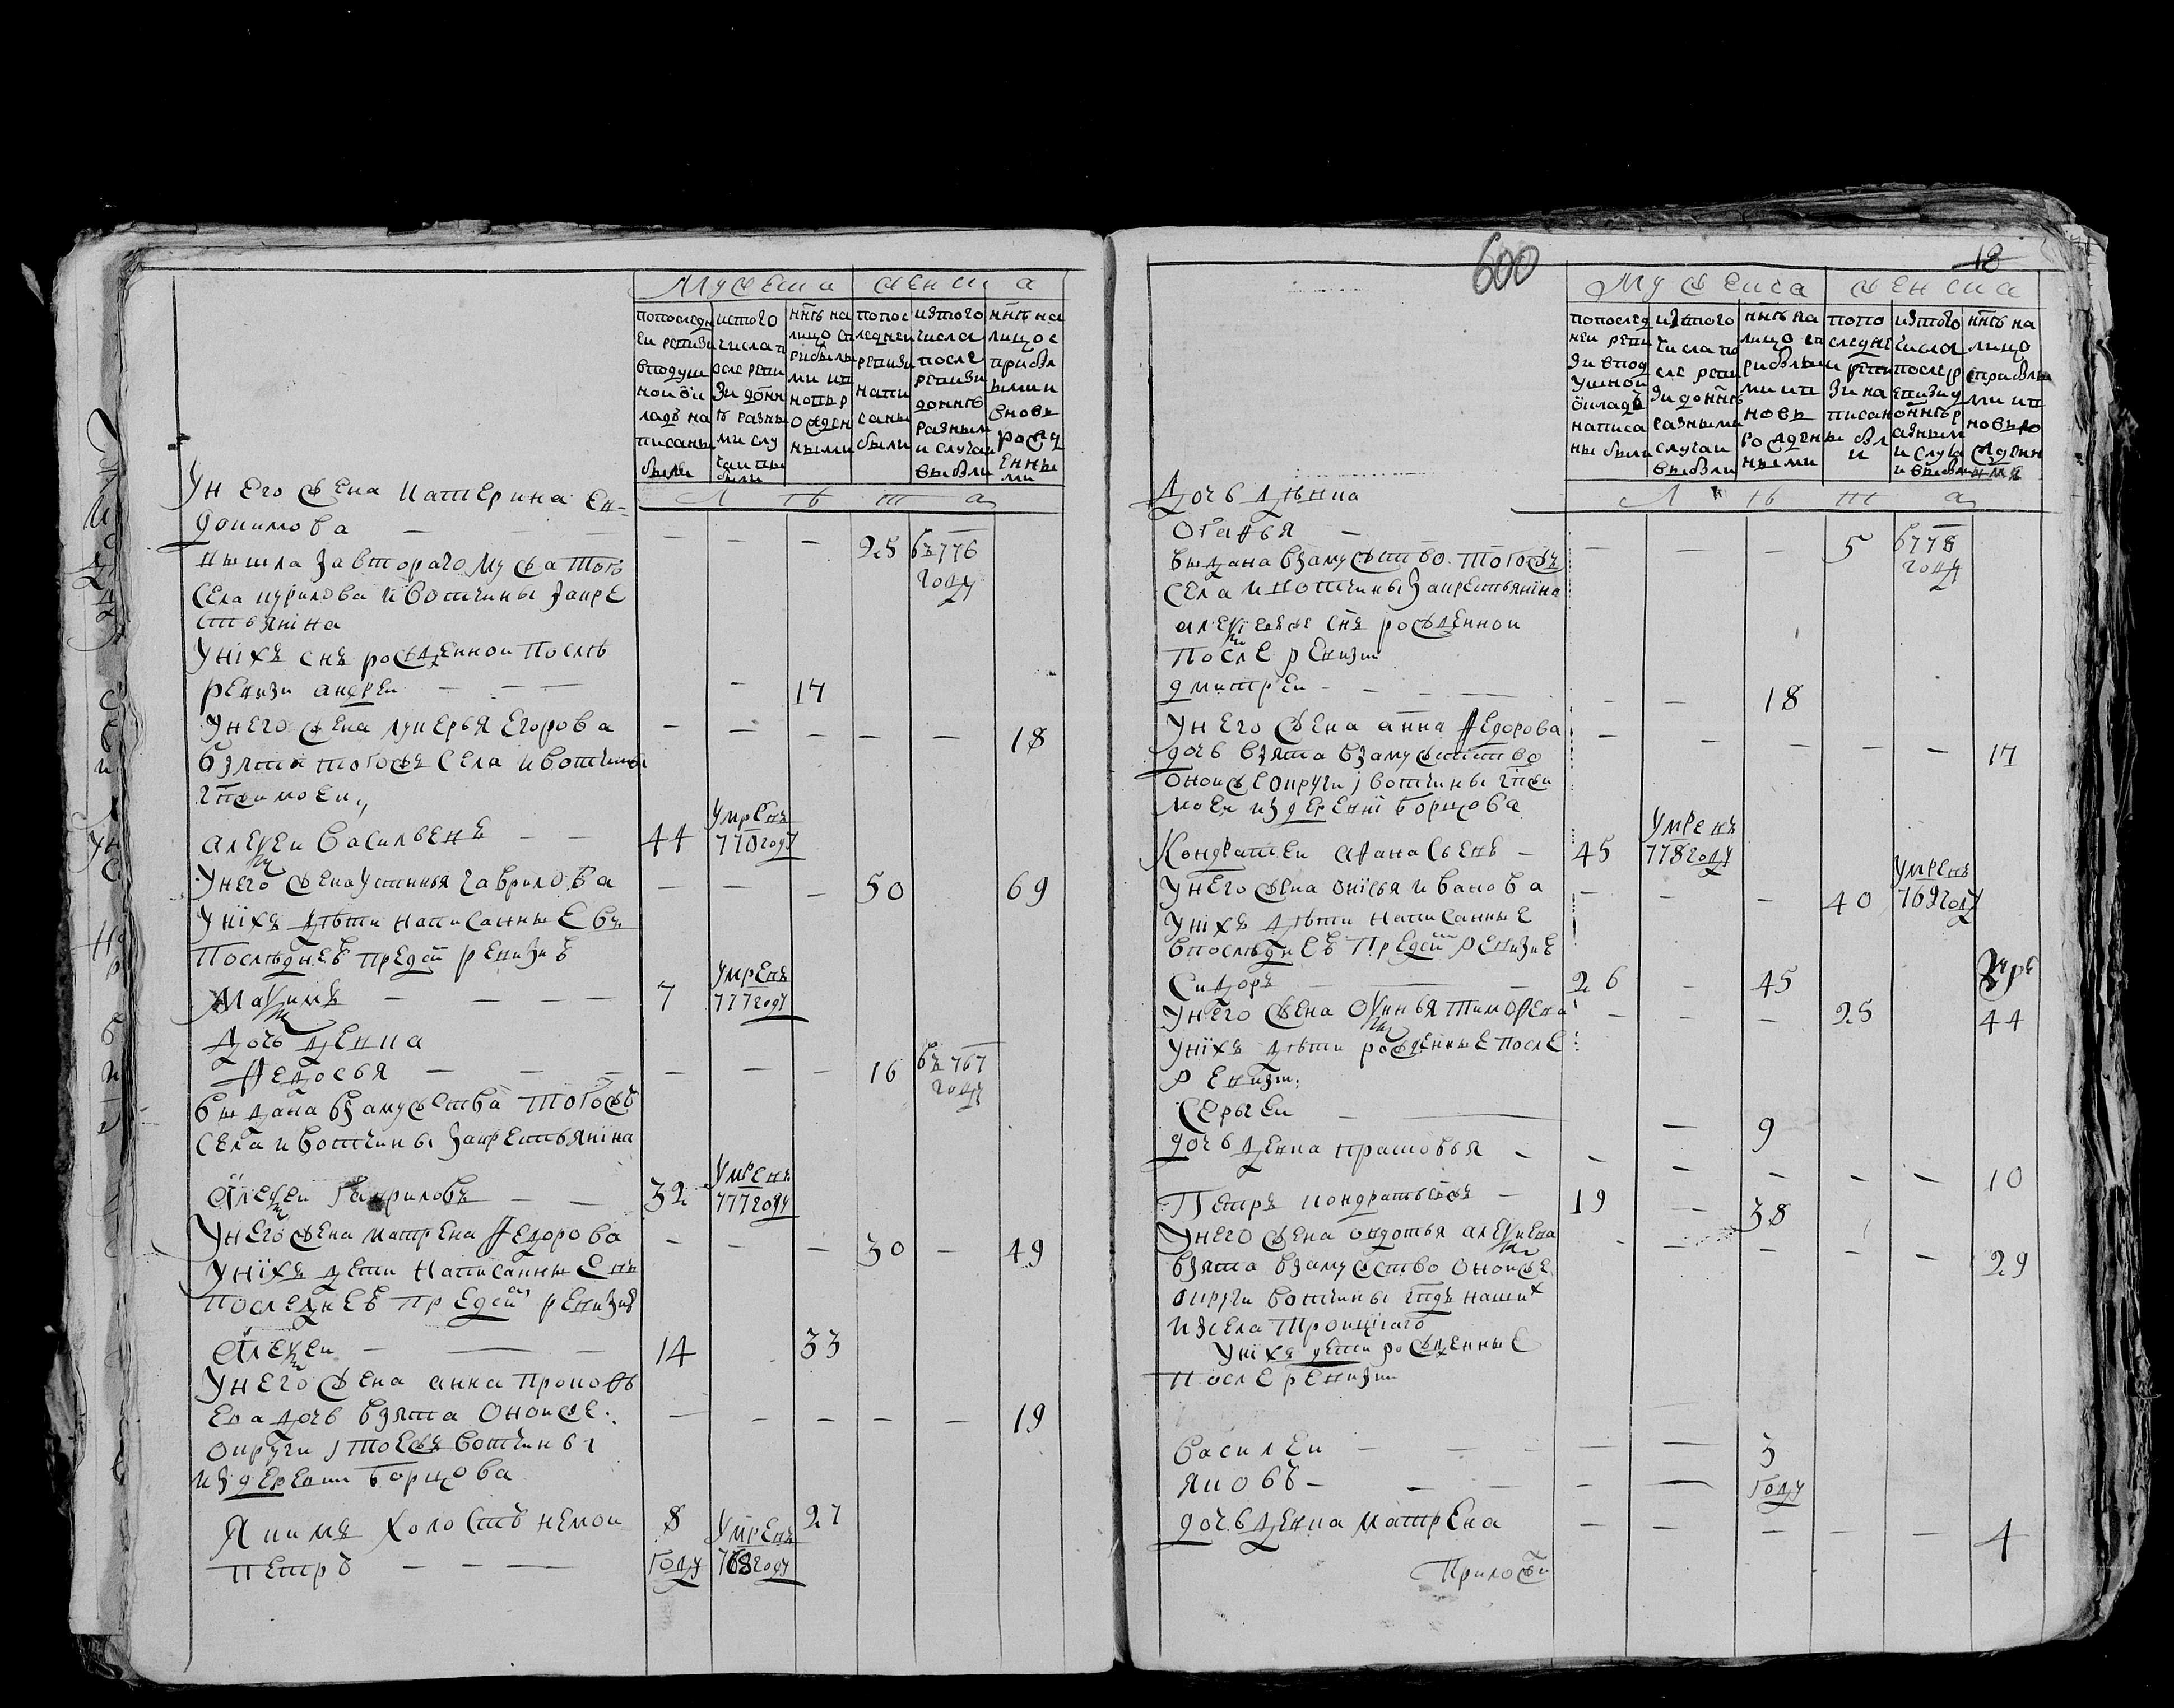 Мужеска женска
попоследней ревизи вподушной окладъ написаны были
истого числа после ревизи донне разными случаи выбыли
ннѣ на лицо сприбылыми и вновь рожденными
попоследней ревизи написаны были
изтого числа после ревизи доннѣ разными случаи выбыли
ннѣ на лицо с прибылыми и вновь рожденными
Л ѣ т а
У него жена катерина Ев-
докимова — — —
— — — 25 въ 776 году
вышла завтораго мужа того
села курилова и вотчины закре
стьянина
У нiхъ снъ рожденной послѣ
ревизи андреи — — — 17
У него жена лукерья Егорова — — — — — 18
взята тогожъ села и вотчины
гпжи моеи
алексеи васильевъ — — 44 умре въ 770 году
У него жена устинья гаврилова — — — 50 69
У нiхъ дѣти написанные въ
последнеѣ пред сеи ревизиѣ
Максимъ — — — — 7 умре въ 777 году
дочь девка
Федосья — — — — — — 16 въ 767 году
выдана взамужества тогожъ
села и вотчины закрестьянiна
Алексеи Гавриловъ — — 32 умре въ 777 году
У него жена матрена Федорова — — — 30 — 49
У нiхъ дети написанные въ
последнеѣ пред сеи ревизиѣ
Алексеи — — — 14 33
У него жена анна прокофь
ева дочь взята оноиже — — — — — 19
округи, тоежъ вотчины
из деревни борщова
Якимъ холостъ немои 8 27
петръ — — — году умре въ 768 году
600
18
Му ж еска женска
попоследней ревизи вподушной окладъ написаны были
изтого числа после ревизи доннѣ разными случаи выбыли
ннѣ на лицо сприбылыми и вновь рожденными
попо следне ревизи написаны были
изтого числа после ревизи доннѣ разными случаи выбыли
ннѣ на лицо сприбылыми и вновь рожденными
Л ѣ т а
дочь дѣвка
огафья — — — — 5 в 778 году
выдана взамужъство тогожъ
села и вотчины закрестьянiна
алексеяже снъ рожденной
после ревизии
дмитреи — — — — — 18
У него жена анна Федорова — — — — — 17
дочь взята взамужъство
оноиже округи, вотчины гпжи
моеи из деревнi борщова
Кондратеи афанасьевъ — 45 умре въ 778 году
У него жена онiсья иванова — — — 40 умре въ 769 году
У нiхъ дѣти написанные
впослѣднеѣ пред сеи ревизиѣ
Сидоръ — — 26 — 45
У него жена оксинья тимофеева — — — 25 44
У нiхъ дѣти рожденные после
ревизи:
Сергеи — — — 9
дочь девка прасковья — — — — — — 10
Петръ кондратьевъ — 19 — 38
У него жена овдотья алексеева — — — — — 29
взята взамужество оноиже
округи вотчины гпдъ нашиⷯ
из села троицкаго
У нiхъ дети рожденные
после ревизии
василеи — — — — — 3
яковъ — — — — — году
дочь девка матрена — — — — — 4
Прилож